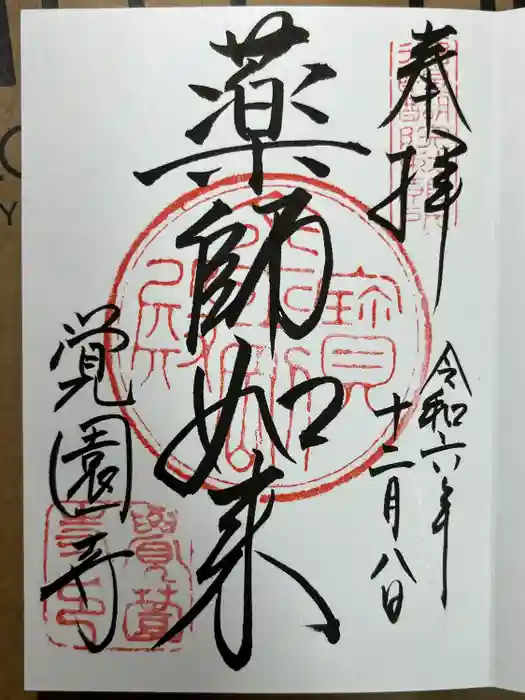 奉拝
令和六年
十二月八日
薬師如来
覚園寺